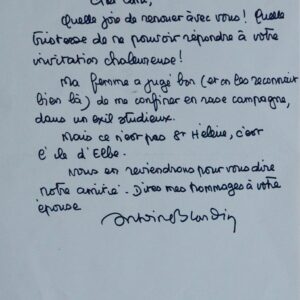 Cher ami,
Quelle joie de renouer avec vous! Quelle
tristesse de ne pouvoir répondre à votre
invitation chaleureuse!
Ma femme a jugé bon (et on les reconnait
bien là) de me confiner en rase campagne,
dans un exil studieux.
Mais ce n'est pas Ste Hélène, c'est
l'île d'Elbe.
Nous en reviendrons pour vous dire
notre amitié. Dites mes hommages à votre
épouse
Antoine Blondin